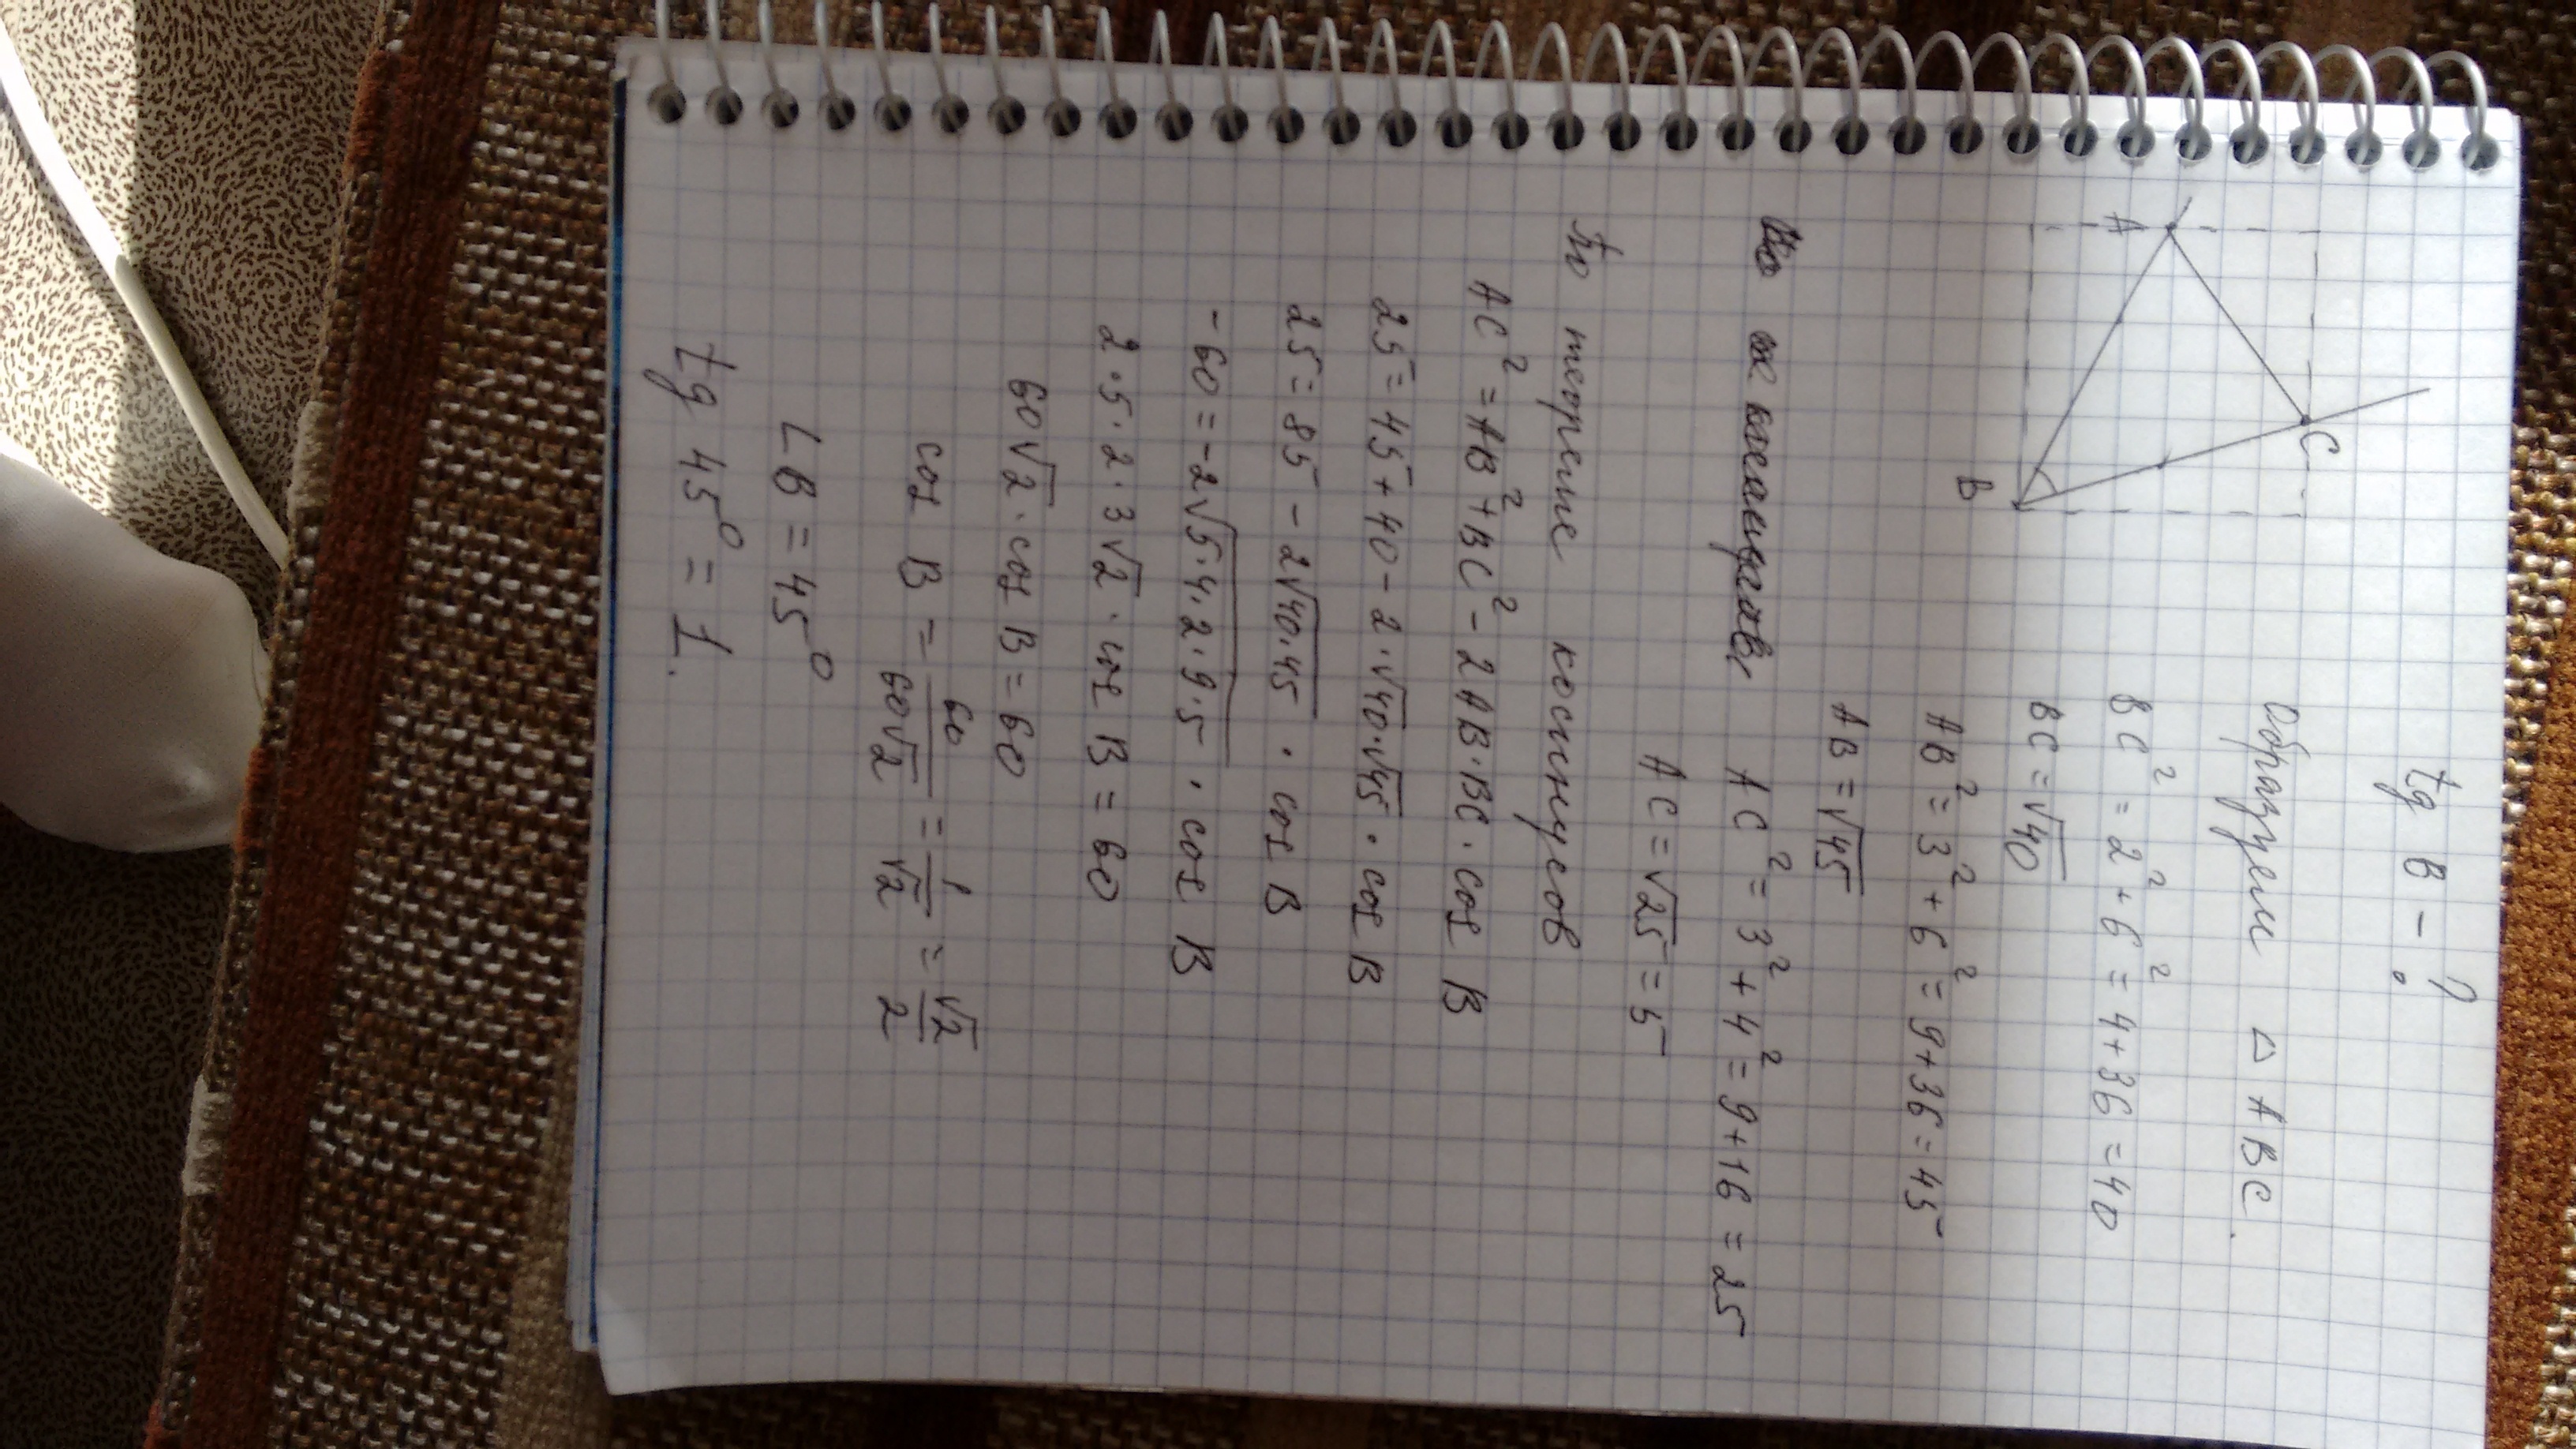 tg B - ?
Образуем △ ABC.
A
C
B
BC² = 2² + 6² = 4 + 36 = 40
BC = √40
AB² = 3² + 6² = 9 + 36 = 45
AB = √45
AC² = 3² + 4² = 9 + 16 = 25
AC = √25 = 5
По теореме косинусов
AC² = AB² + BC² - 2AB·BC·cos B
25 = 45 + 40 - 2·√40·√45·cos B
25 = 85 - 2√40·45 · cos B
-60 = -2√5·4·2·9·5 · cos B
2·5·2·3√2·cos B = 60
60√2·cos B = 60
cos B = 60/60√2 = 1/√2 = √2/2
∠B = 45°
tg 45° = 1.